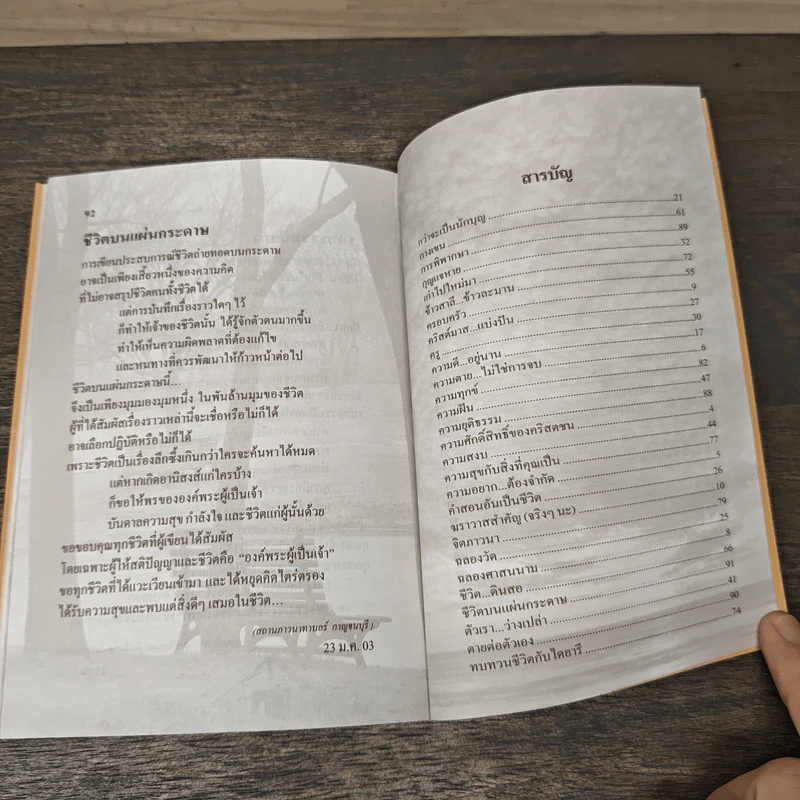 92
ชีวิตบนแผ่นกระดาษ
การเขียนประสบการณ์ชีวิตถ่ายทอดบนกระดาษ
อาจเป็นเพียงเสี้ยวหนึ่งของความคิด
ที่ไม่อาจสรุปชีวิตคนทั้งชีวิตได้
แต่การบันทึกเรื่องราวใดๆ ไว้
ก็ทำให้เจ้าของชีวิตนั้น ได้รู้จักตัวตนมากขึ้น
ทำให้เห็นความผิดพลาดที่ต้องแก้ไข
และหนทางที่ควรพัฒนาให้ก้าวหน้าต่อไป
ชีวิตบนแผ่นกระดาษนี้...
จึงเป็นเพียงมุมมองมุมหนึ่ง ในพันล้านมุมของชีวิต
ผู้ที่ได้สัมผัสเรื่องราวเหล่านี้จะเชื่อหรือไม่ก็ได้
อาจเลือกปฏิบัติหรือไม่ก็ได้
เพราะชีวิตเป็นเรื่องลึกซึ้งเกินกว่าใครจะค้นหาได้หมด
แต่หากเกิดอานิสงส์แก่ใครบ้าง
ก็ขอให้พรขององค์พระผู้เป็นเจ้า
บันดาลความสุข กำลังใจ และชีวิตแก่ผู้นั้นด้วย
ขอขอบคุณทุกชีวิตที่ผู้เขียนได้สัมผัส
โดยเฉพาะผู้ให้สติปัญญาและชีวิตคือ “องค์พระผู้เป็นเจ้า”
ขอทุกชีวิตที่ได้แวะเวียนเข้ามา และได้หยุดคิดไตร่ตรอง
ได้รับความสุขและพบแต่สิ่งดีๆ เสมอในชีวิต...
(สถานภาวนาทาบอร์ กาญจนบุรี)
23 ม.ค. 03
สารบัญ
กว่าจะเป็นนักบุญ 21
กางเขน 61
การพิพากษา 89
กุญแจหาย 32
เก่าไปใหม่มา 72
ข้าวสาลี...ข้าวละมาน 55
ครอบครัว 9
คริสต์มาส...แบ่งปัน 27
ครู 30
ความดี...อยู่นาน 17
ความตาย...ไม่ใช่การจบ 6
ความทุกข์ 82
ความฝัน 47
ความยุติธรรม 88
ความศักดิ์สิทธิ์ของคริสตชน 4
ความสงบ 44
ความสุขกับสิ่งที่คุณเป็น 77
ความอยาก...ต้องจำกัด 5
คำสอนอันเป็นชีวิต 26
ฆราวาสสำคัญ (จริงๆ นะ) 10
จิตภาวนา 79
ฉลองวัด 25
ฉลองศาสนนาม 8
ชีวิต...ดินสอ 66
ชีวิตบนแผ่นกระดาษ 91
ตัวเรา...ว่างเปล่า 41
ตายต่อตัวเอง 90
ทบทวนชีวิตกับไดอารี่ 74